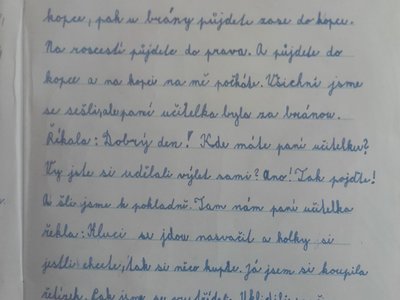 kopce, pak u brány půjdete zase do kopce.
Na roscestí půjdete do prava. A půjdete do
kopce a na kopci na mě počkáte. Všichni jsme
se sešli, ale paní učitelka byla za bránou.
Říkala: Dobrý den!" Kde máte paní učitelku?
Vy jste si udělali výlet sami? Ano! Tak pojďte!
A šli jsme k pokladně. Tam nám paní učitelka
řekla: Kluci se jdou nasvačit a holky si
jestli chcete, tak si něco kupte. Já jsem si koupila